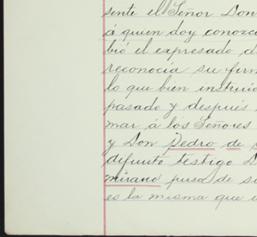 sente el Señor Don
á quien doy conozco
bió el expresado d
reconocía su firm
lo que bien instruid
pasado y después
mar á los Señores
y Don Pedro de
difunto testigo D
mirano puso de su
es la misma que u